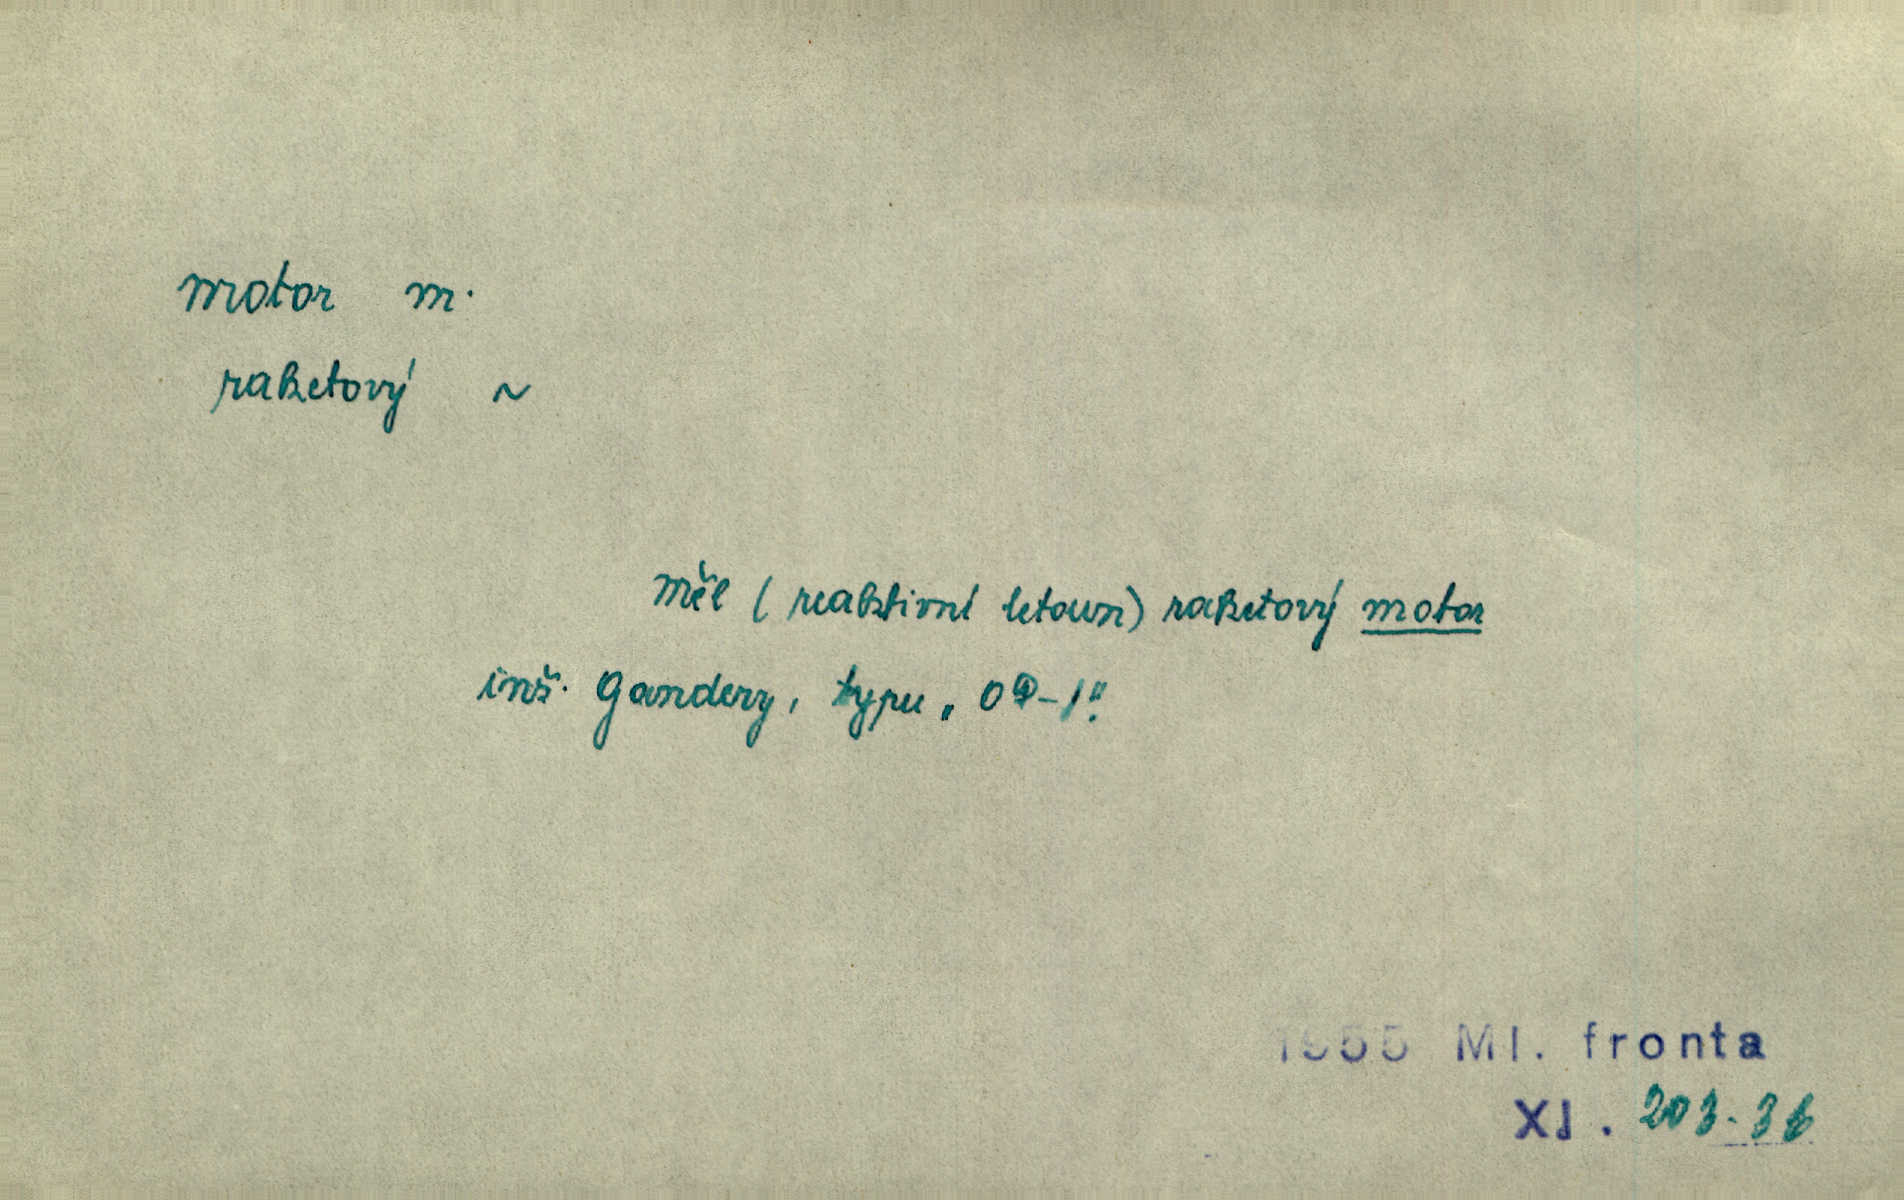 motor m.
raketový ~
měl (reaktivní letoun) raketový motor
inž. Gandery, typu „ OP-1".
1955 Ml. fronta
XI. 203-36